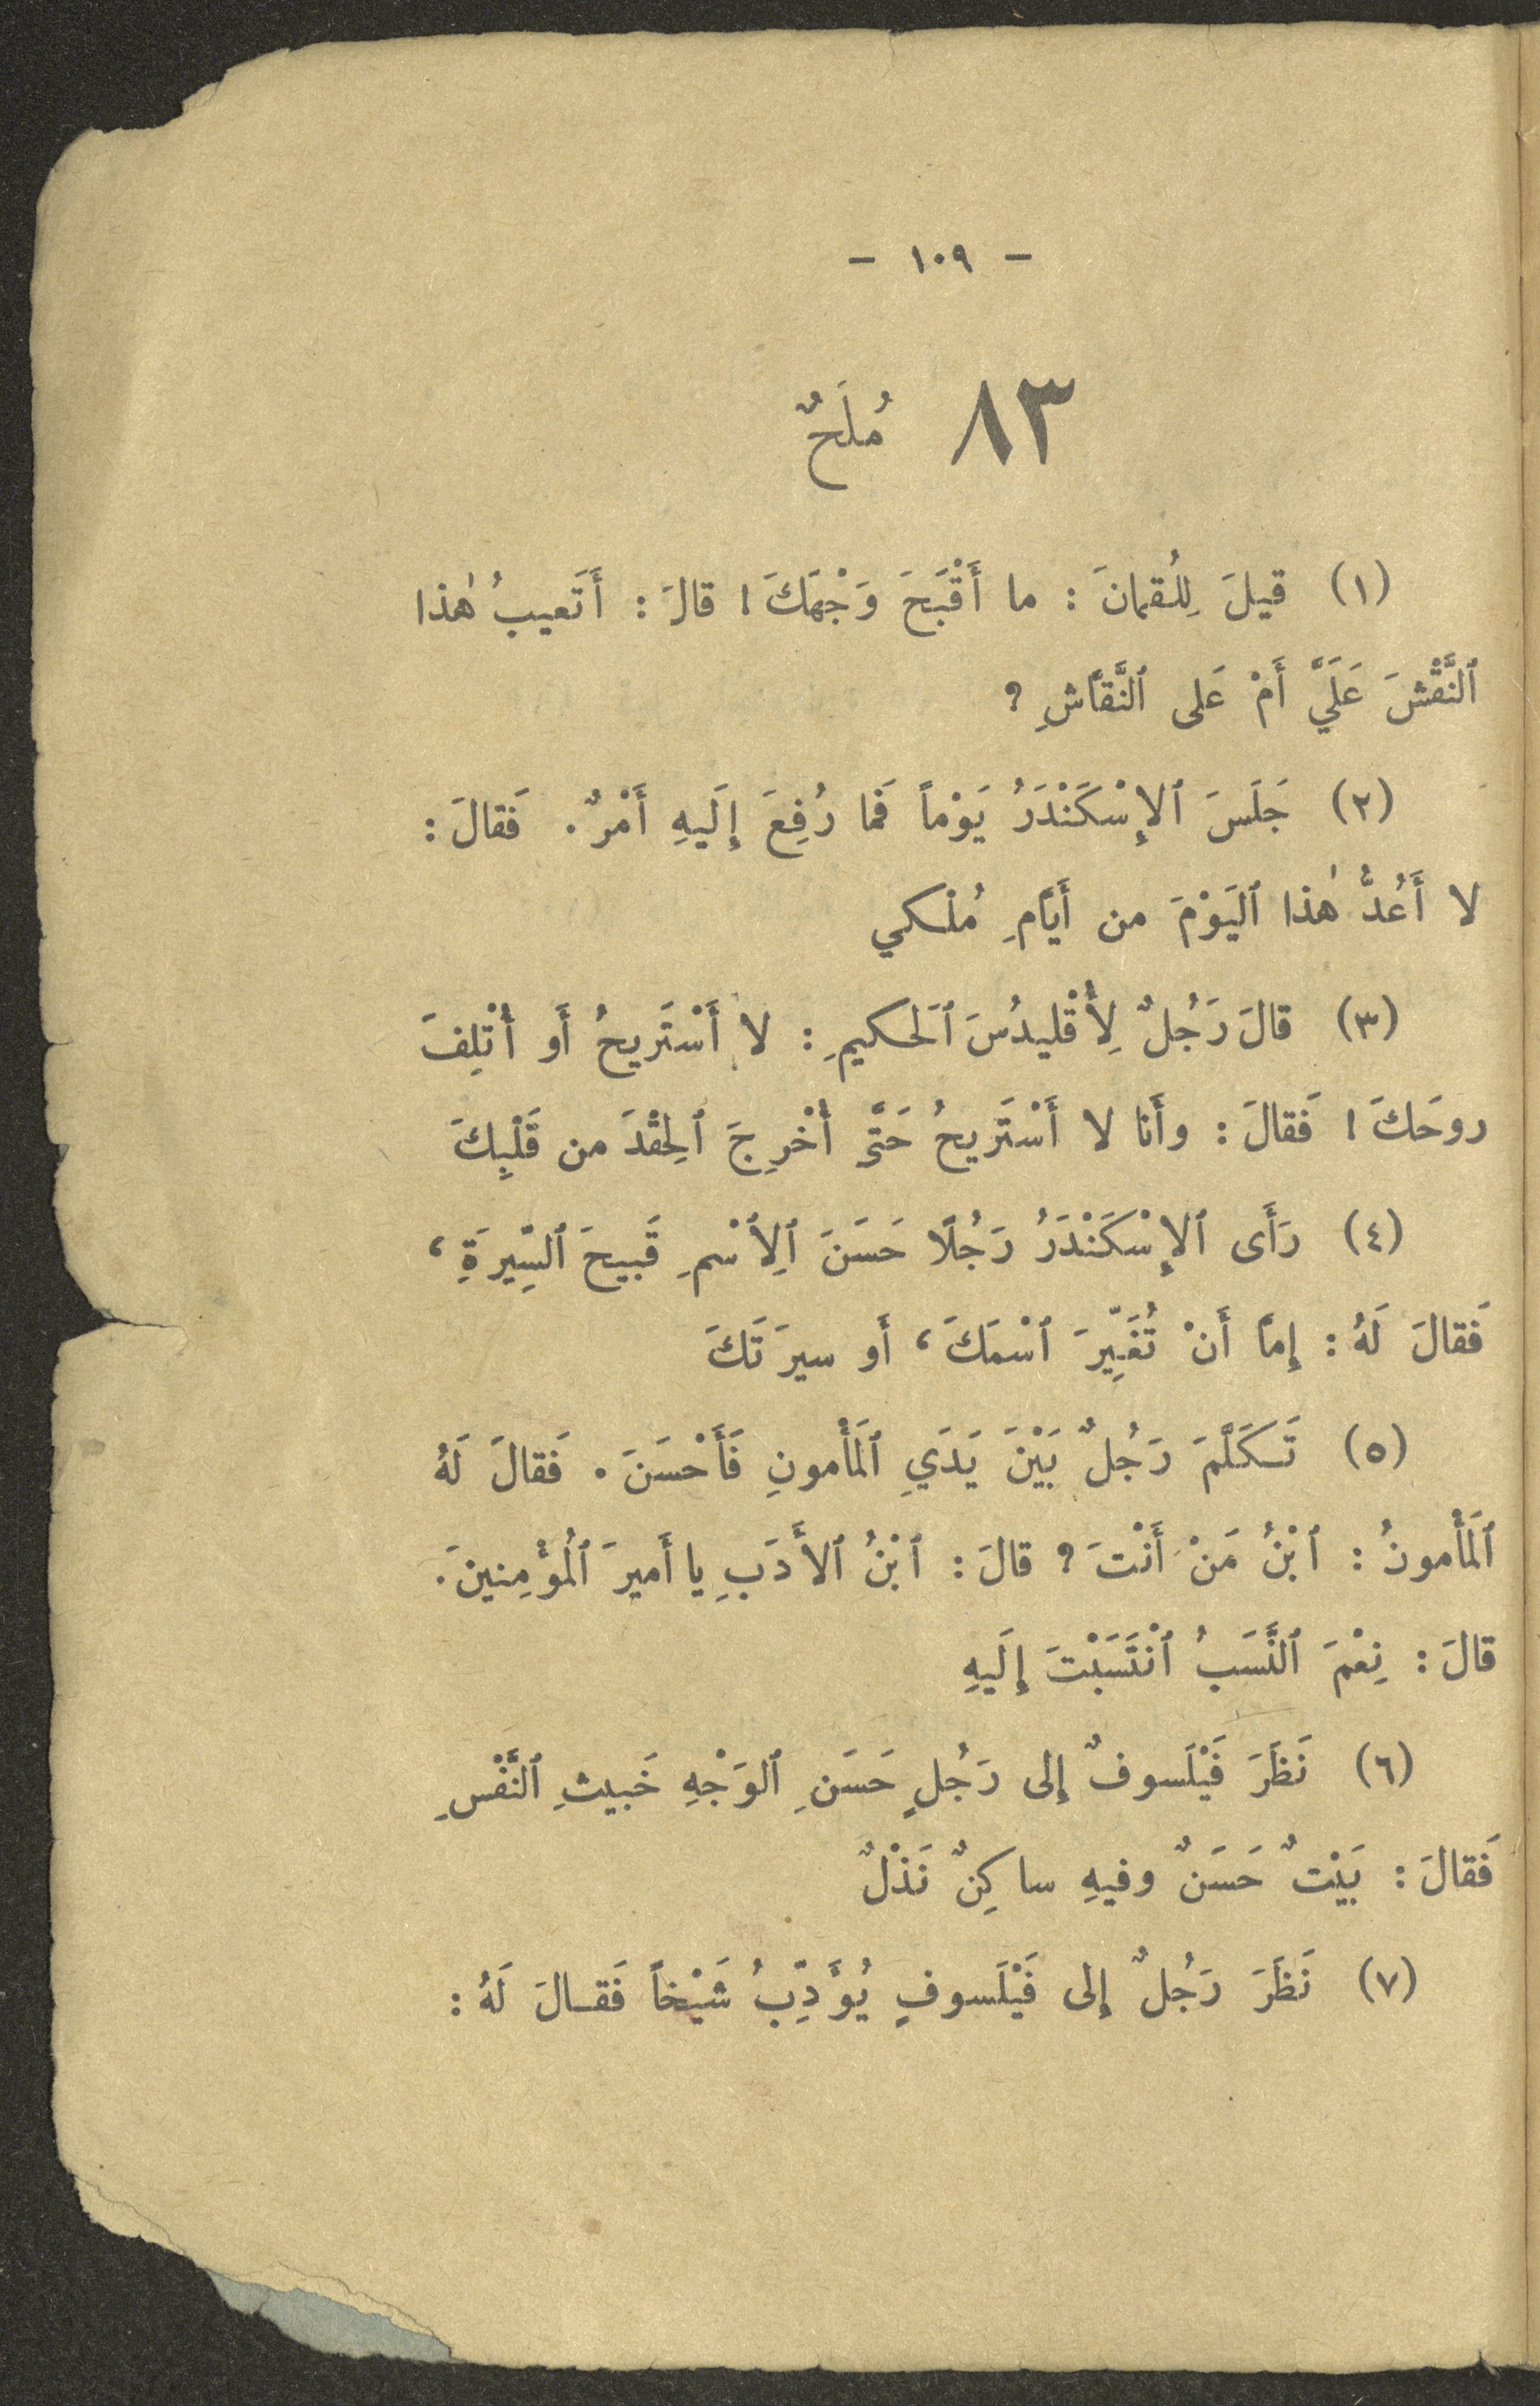 - ١٠٩ -
٨٣ مُلَحٌ
(١) قيلَ لِلُقمانَ : ما أَقْبَحَ وَجْهَكَ ! قالَ : أَتَعيبُ هٰذا
ٱلنَّقْشَ عَلَيَّ أَمْ عَلى ٱلنَّقَّاشِ ؟
(٢) جَلَسَ ٱلإِسْكَنْدَرُ يَوْماً فَما رُفِعَ إِلَيهِ أَمْرٌ . فَقالَ :
لا أَعُدُّ هٰذا ٱليَوْمَ من أَيَّامِ مُلْكي
(٣) قالَ رَجُلٌ لِأُقْليدُسَ ٱلَحكيمِ : لا أَسْتَريحُ أَو أُتْلِفَ
روحَكَ ! فَقالَ : وأَنا لا أَسْتَريحُ حَتَّى أُخْرِجَ ٱلحِقْدَ من قَلْبِكَ
(٤) رَأَى ٱلإِسْكَنْدَرُ رَجُلًا حَسَنَ ٱلِٱسْمِ قَبيحَ ٱلسِّيرَةِ ،
فَقالَ لَهُ : إِمَّا أَنْ تُغَيِّرَ ٱسْمَكَ ، أَو سيرَتَكَ
(٥) تَكَلَّمَ رَجُلٌ بَيْنَ يَدَيِ ٱلَمأْمونِ فَأَحْسَنَ . فَقالَ لَهُ
ٱلَمأْمونُ : ٱبْنُ مَنْ أَنْتَ ؟ قالَ : ٱبْنُ ٱلأَدَبِ يا أَميرَ ٱلُمؤْمِنينَ .
قالَ : نِعْمَ ٱلنَّسَبُ ٱنْتَسَبْتَ إِلَيهِ
(٦) نَظَرَ فَيْلَسوفٌ إِلى رَجُلٍ حَسَنِ ٱلوَجْهِ خَبيثِ ٱلنَّفْسِ
فَقالَ : بَيْتٌ حَسَنٌ وفيهِ ساكِنٌ نَذْلٌ
(٧) نَظَرَ رَجُلٌ إِلى فَيْلَسوفٍ يُؤَدِّبُ شَيْخاً فَقالَ لَهُ :